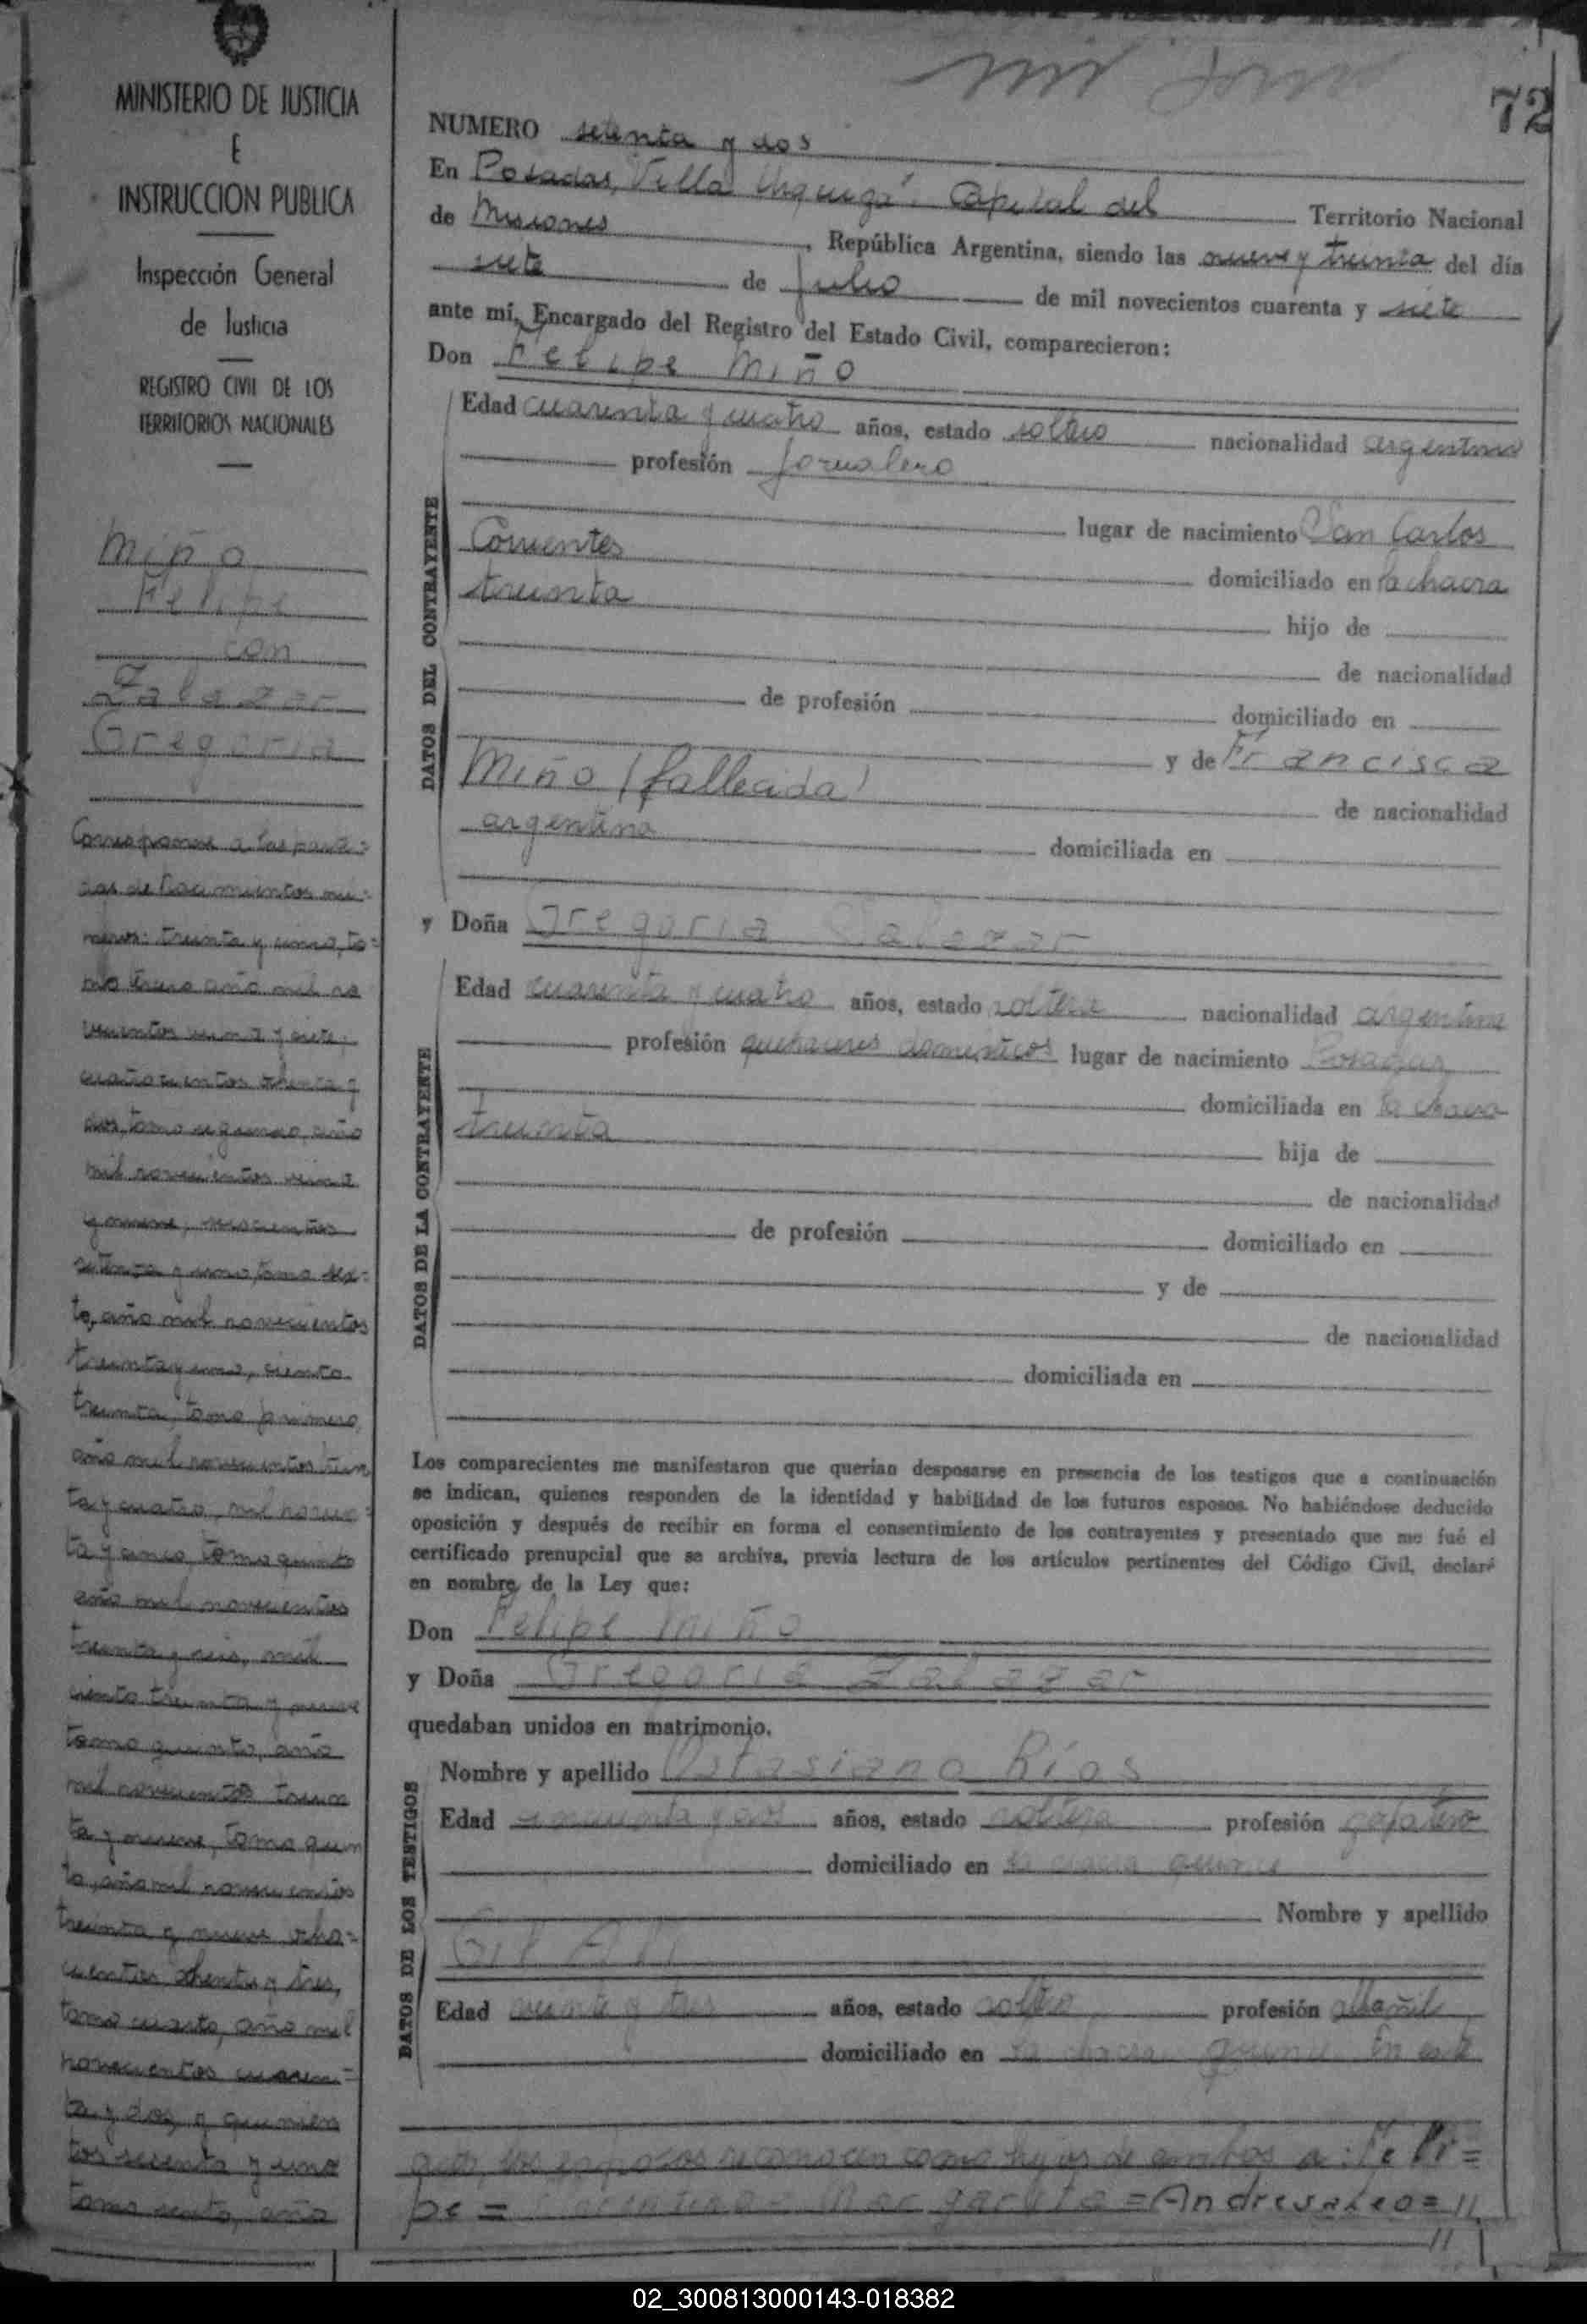 MINISTERIO DE JUSTICIA
E
INSTRUCCION PUBLICA
Inspección General
de Justicia
REGISTRO CIVIL DE LOS
TERRITORIOS NACIONALES
Miño
Felipe
con
Zalazar
Gregoria
Corresponde a las parti=
das de nacimientos nú=
meros: treinta y cinco, to=
mo
cuatrocientos ochenta y
dos, tomo segundo, año
mil novecientos veinte
y nueve, seiscientos
setenta y uno, tomo sex=
to, año mil novecientos
treinta y uno, ciento
treinta, tomo primero,
año mil novecientos trein
ta y cuatro, mil noven=
ta y cinco, tomo quinto
año mil novecientos
treinta y seis, mil
ciento treinta y nueve
tomo quinto, año
mil novecientos trein
ta y nueve, tomo quin
to, año mil novecientos
treinta y nueve, ocho=
cientos ochenta y tres,
tomo cuarto, año mil
novecientos cuaren=
ta y dos, y quinien
tos sesenta y uno
tomo sexto, año
72
NUMERO setenta y dos
En Posadas, Villa Urquiza, Capital del Territorio Nacional
de Misiones, República Argentina, siendo las nueve y treinta del día
siete de Julio de mil novecientos cuarenta y siete
ante mí, Encargado del Registro del Estado Civil, comparecieron:
Don Felipe Miño
DATOS DEL CONTRAYENTE
Edad cuarenta y cuatro años, estado soltero nacionalidad argentina
profesión Jornalero
lugar de nacimiento San Carlos
Corrientes domiciliado en la chacra
treinta hijo de
de nacionalidad
de profesión domiciliado en
y de Francisca
Miño (fallecida) de nacionalidad
argentina domiciliada en
y Doña Gregoria Zalazar
DATOS DE LA CONTRAYENTE
Edad cuarenta y cuatro años, estado soltera nacionalidad argentina
profesión quehaceres domésticos lugar de nacimiento Posadas
domiciliada en la chacra
treinta hija de
de nacionalidad
de profesión domiciliado en
y de
de nacionalidad
domiciliada en
Los comparecientes me manifestaron que querían desposarse en presencia de los testigos que a continuación
se indican, quienes responden de la identidad y habilidad de los futuros esposos. No habiéndose deducido
oposición y después de recibir en forma el consentimiento de los contrayentes y presentado que me fué el
certificado prenupcial que se archiva, previa lectura de los artículos pertinentes del Código Civil, declaré
en nombre de la Ley que:
Don Felipe Miño
y Doña Gregoria Zalazar
quedaban unidos en matrimonio.
DATOS DE LOS TESTIGOS
Nombre y apellido Ríos
Edad cincuenta y dos años, estado soltero profesión zapatero
domiciliado en la chacra quince
Nombre y apellido
Gil
Edad y tres años, estado soltero profesión albañil
domiciliado en la chacra quince En este
acto, los esposos reconocen como hijos de ambos a: Feli=
pe = Margarita = Andres = //
//
02_300813000143-018382